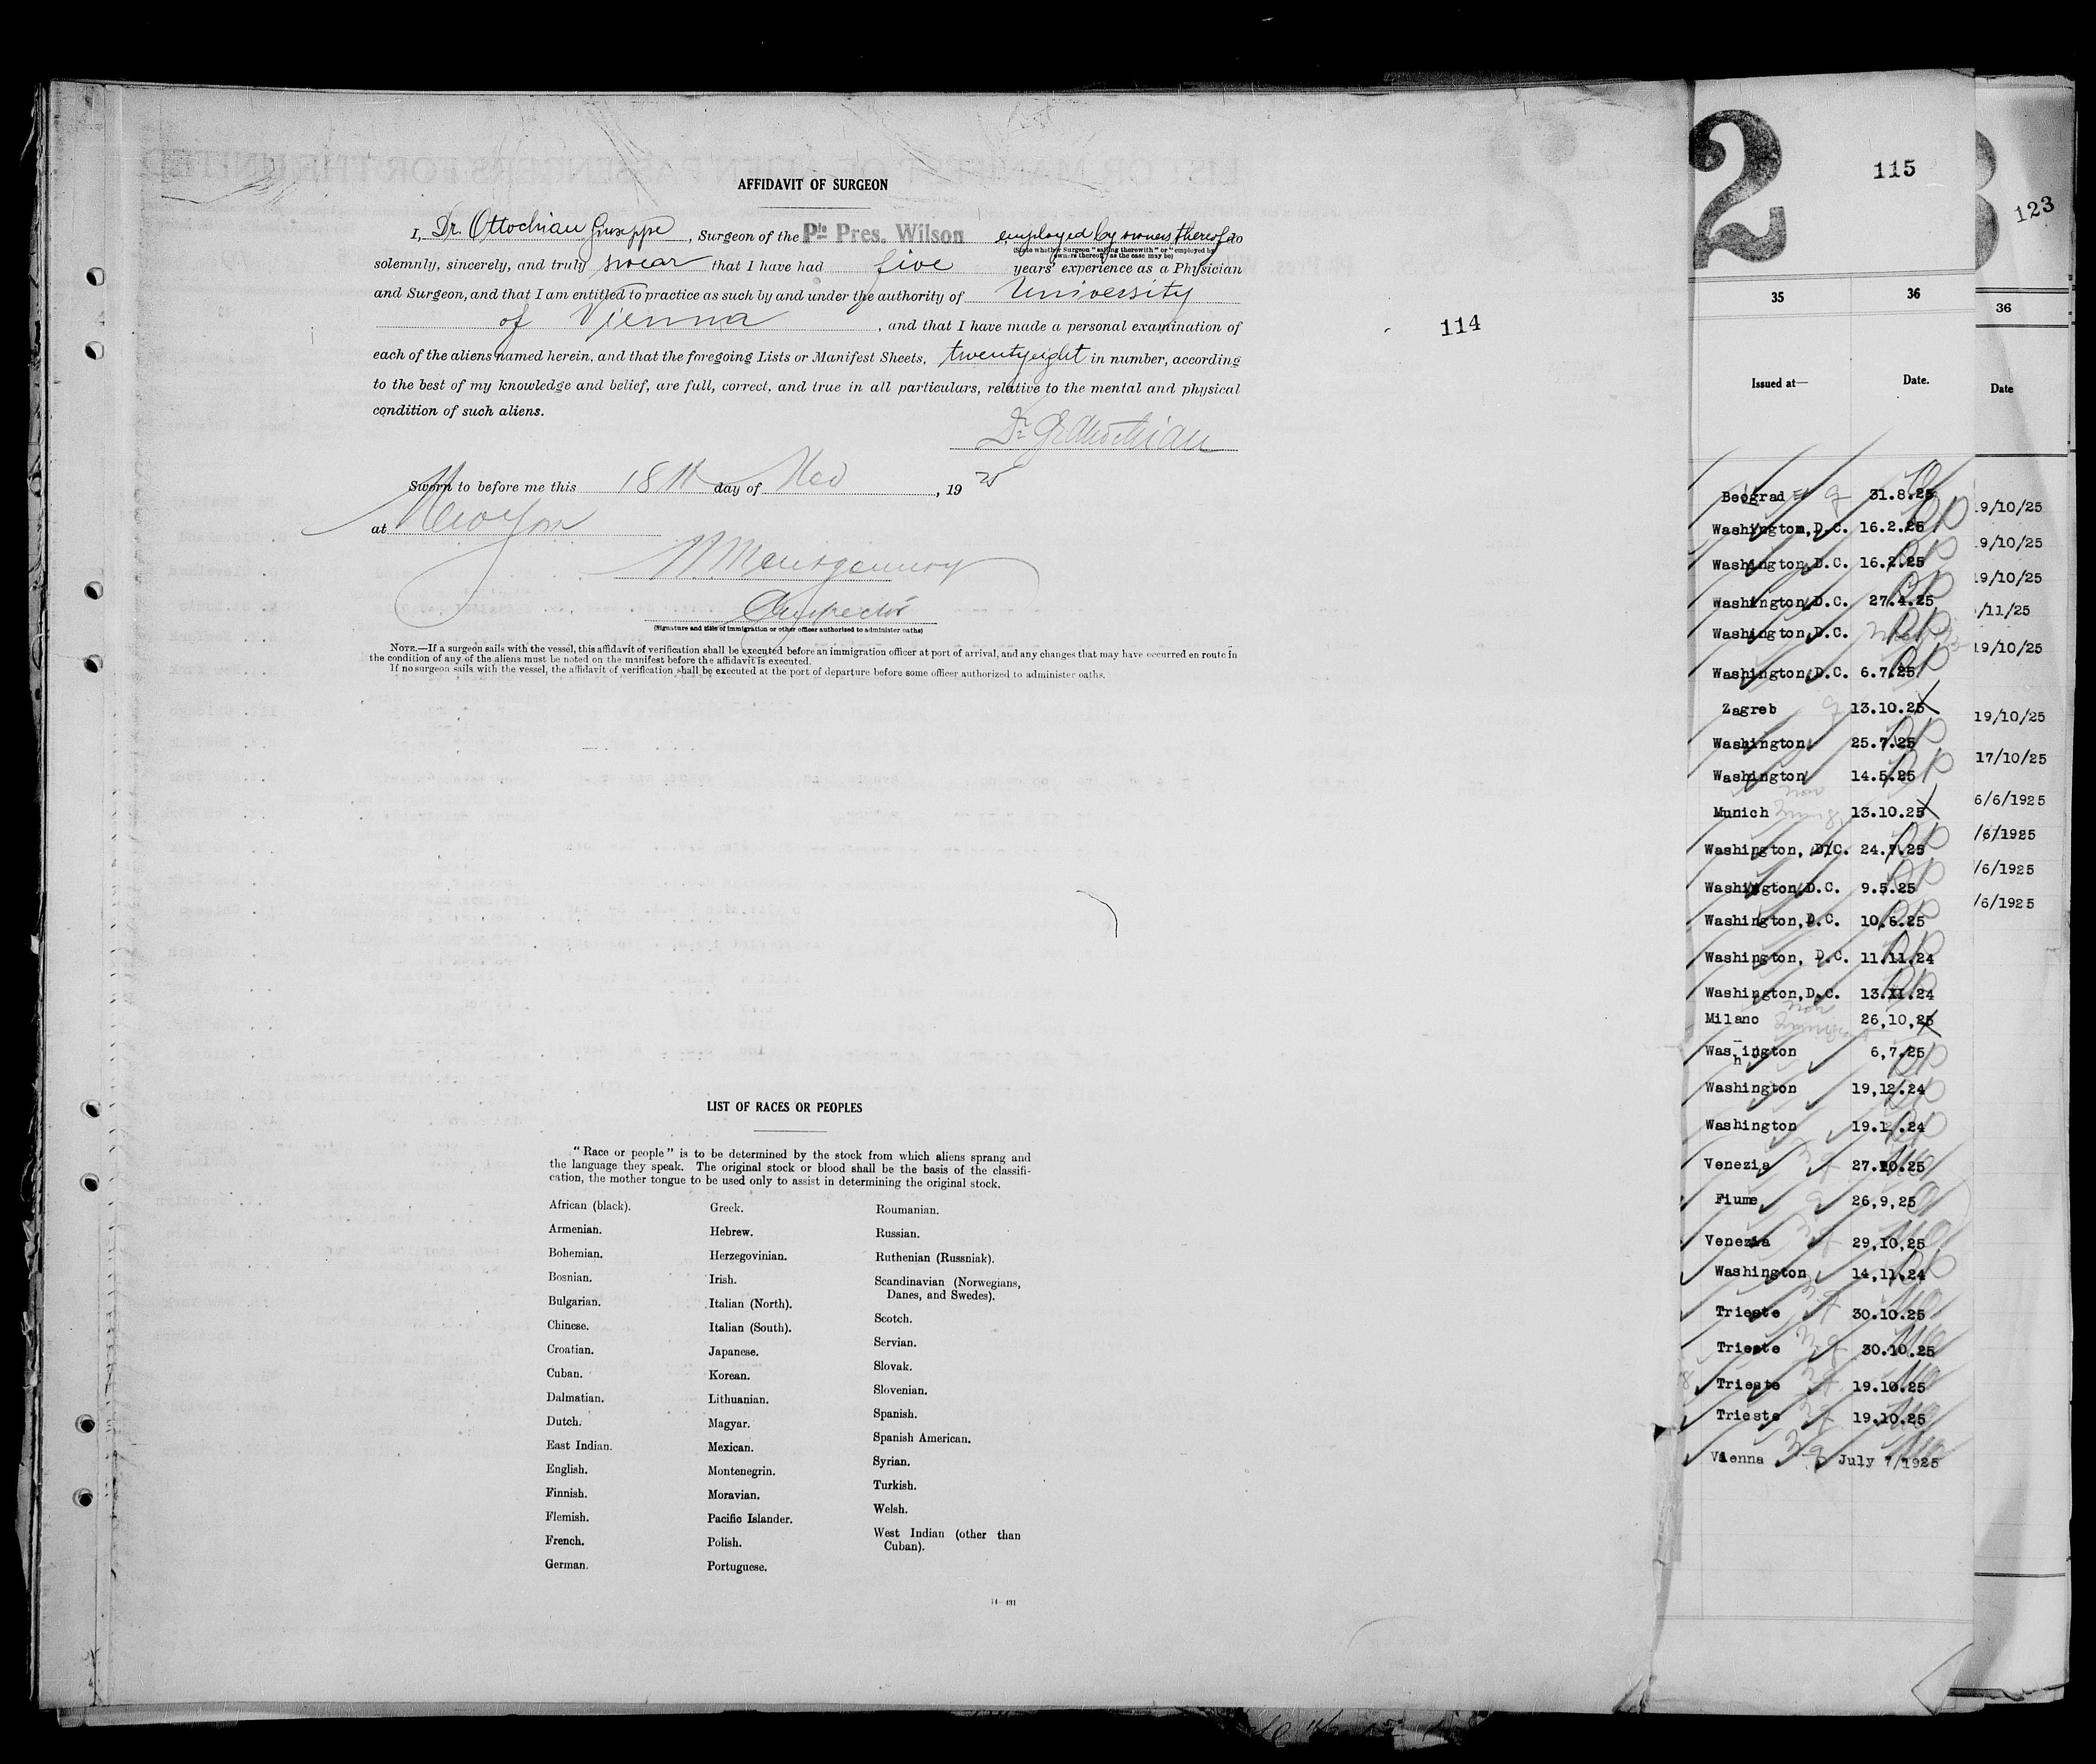 AFFIDAVIT OF SURGEON
I, Dr. Ottochian Giuseppe, Surgeon of the Pte Pres. Wilson employed by owners thereof do
(State whether Surgeon "sailing therewith" or "employed by owners thereof," as the case may be)
solemnly, sincerely, and truly swear that I have had five years' experience as a Physician
and Surgeon, and that I am entitled to practice as such by and under the authority of University
of Vienna, and that I have made a personal examination of
each of the aliens named herein, and that the foregoing Lists or Manifest Sheets, twentyeight in number, according
to the best of my knowledge and belief, are full, correct, and true in all particulars, relative to the mental and physical
condition of such aliens.
Dr G Ottochian
Sworn to before me this 18th day of Nov, 1925
at New York
Montgomery
Inspector
(Signature and title of immigration or other officer authorized to administer oaths)
NOTE.—If a surgeon sails with the vessel, this affidavit of verification shall be executed before an immigration officer at port of arrival, and any changes that may have occurred en route in
the condition of any of the aliens must be noted on the manifest before the affidavit is executed.
If no surgeon sails with the vessel, the affidavit of verification shall be executed at the port of departure before some officer authorized to administer oaths.
114
LIST OF RACES OR PEOPLES
"Race or people" is to be determined by the stock from which aliens sprang and
the language they speak. The original stock or blood shall be the basis of the classifi-
cation, the mother tongue to be used only to assist in determining the original stock.
African (black).
Armenian.
Bohemian.
Bosnian.
Bulgarian.
Chinese.
Croatian.
Cuban.
Dalmatian.
Dutch.
East Indian.
English.
Finnish.
Flemish.
French.
German.
Greek.
Hebrew.
Herzegovinian.
Irish.
Italian (North).
Italian (South).
Japanese.
Korean.
Lithuanian.
Magyar.
Mexican.
Montenegrin.
Moravian.
Pacific Islander.
Polish.
Portuguese.
Roumanian.
Russian.
Ruthenian (Russniak).
Scandinavian (Norwegians,
Danes, and Swedes).
Scotch.
Servian.
Slovak.
Slovenian.
Spanish.
Spanish American.
Syrian.
Turkish.
Welsh.
West Indian (other than
Cuban).
2
115
35 36
Issued at— Date.
Beograd 31.8.25
Washington, D.C. 16.2.25
Washington, D.C. 16.2.25
Washington, D.C. 27.4.25
Washington, D.C.
Washington, D.C. 6.7.25
Zagreb 13.10.25
Washington 25.7.25
Washington 14.5.25
Munich 13.10.25
Washington, D.C. 24.7.25
Washington D.C. 9.5.25
Washington, D.C. 10.6.25
Washington, D.C. 11.11.24
Washington, D.C. 13.XI.24
Milano 26,10,25
Washington 6,7.25
Washington 19,12.24
Washington 19.1 .24
Venezia 27.10.25
Fiume 26,9,25
Venezia 29,10,25
Washington 14,11.24
Trieste 30.10.25
Trieste 30.10.25
Trieste 19.10.25
Trieste 19.10.25
Vienna July 7/1925
123
36
Date
19/10/25
19/10/25
19/10/25
/11/25
19/10/25
19/10/25
17/10/25
6/6/1925
/6/1925
/6/1925
/6/1925